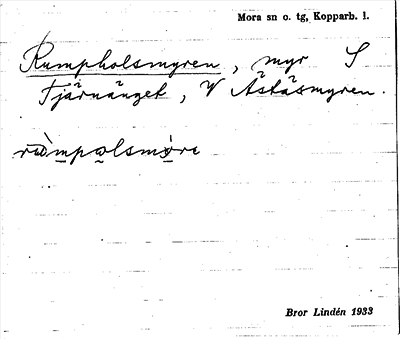 Mora sn o. tg, Kopparb. l.
Rumpholsmyren, myr S
Tjärnänget, V Åstäsmyren.
Bror Lindén 1933